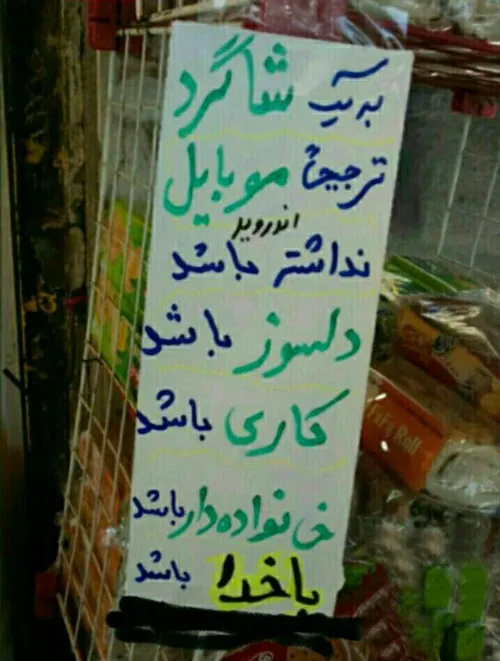 به یک شاگرد
ترجیحاً موبایل
اندروید
نداشته باشد
دلسوز باشد
کاری باشد
خانواده دار باشد
باخدا باشد
Roll